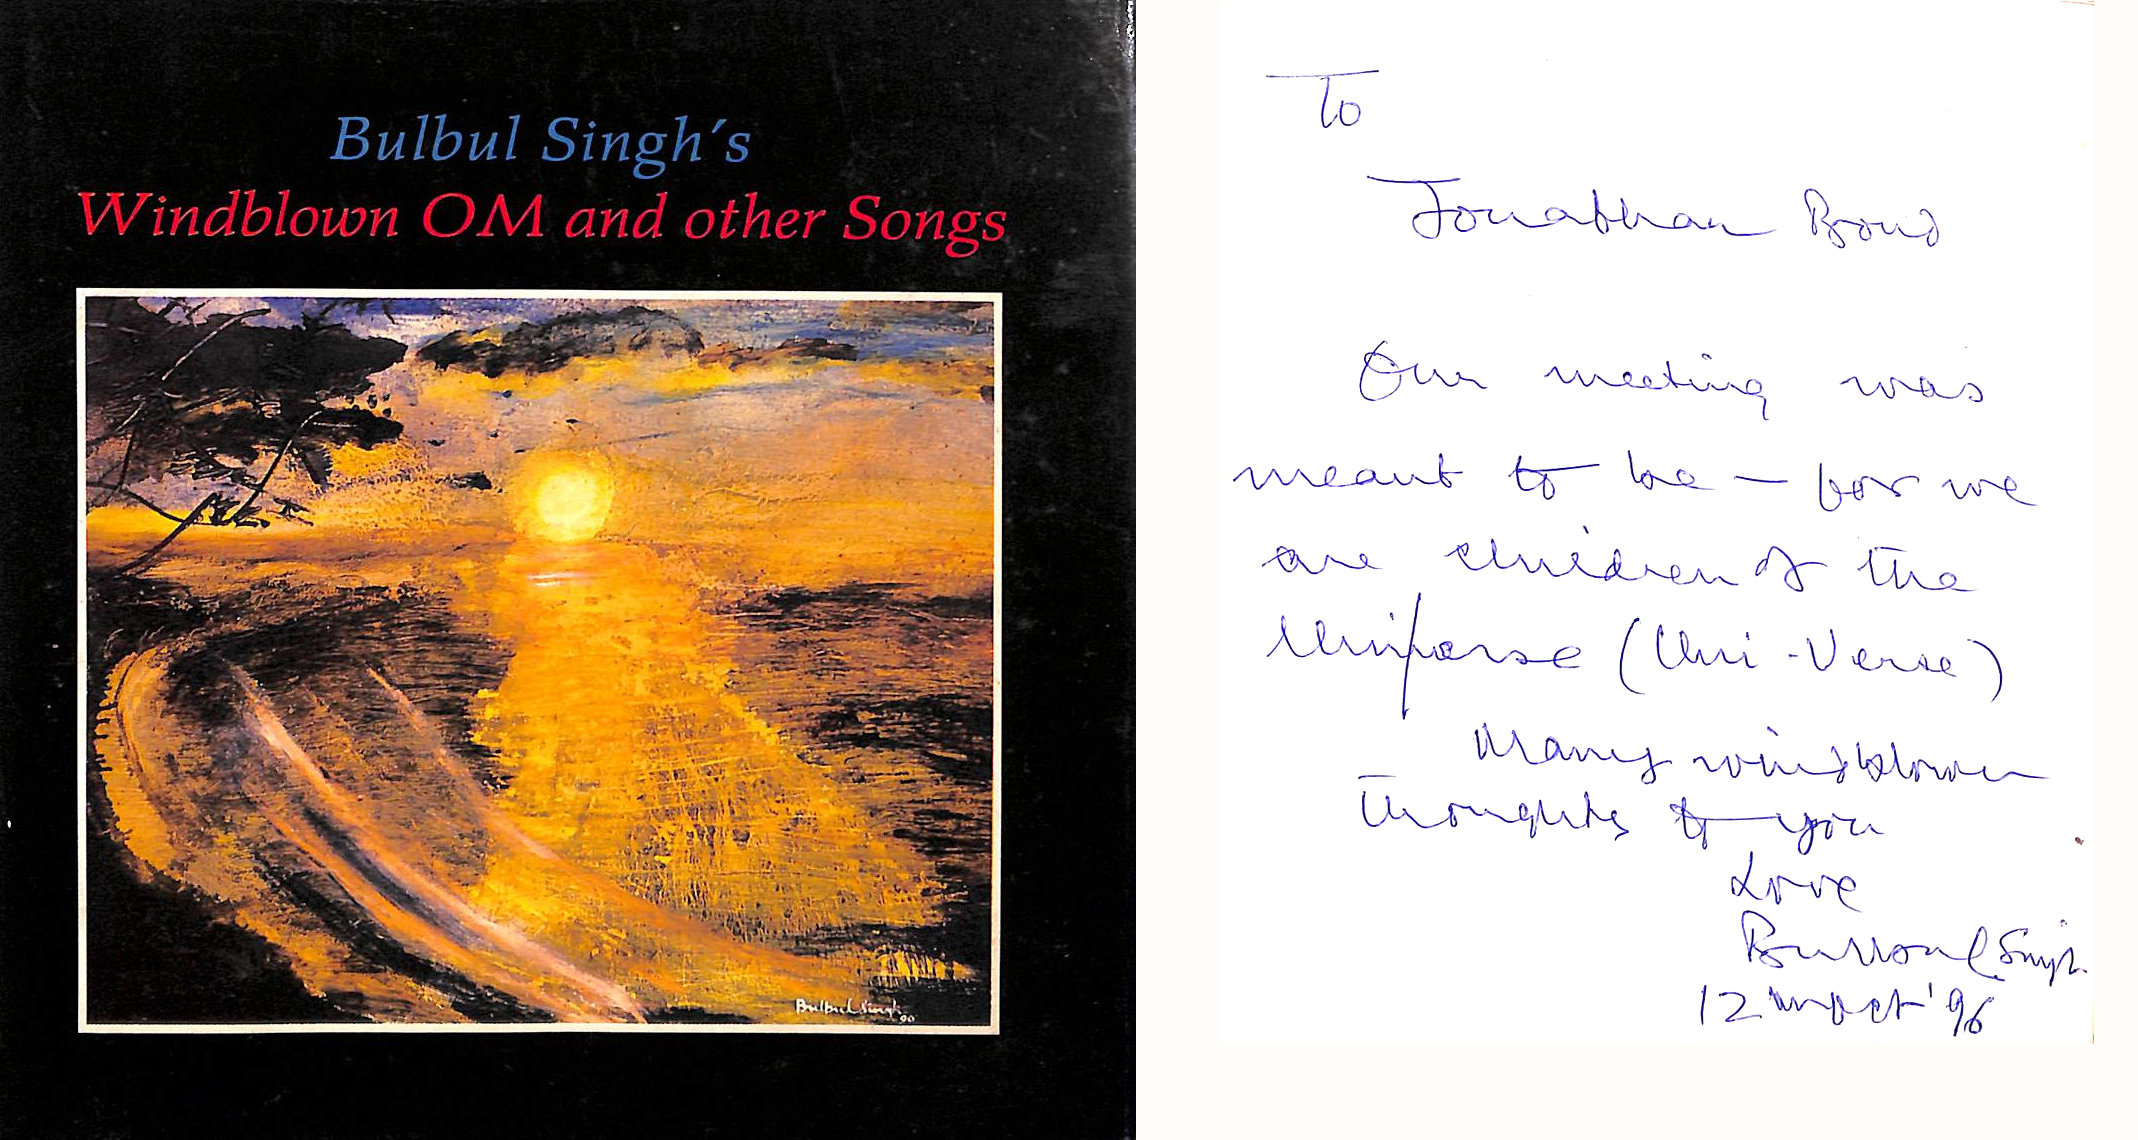 Bulbul Singh's
Windblown OM and other Songs
Bulbul Singh
90
To
Jonathan Bond
Our meeting was
meant to be — for we
are children of the
Universe (Uni-Verse)
Many windblown
thoughts to you
Love
Bulbul Singh.
12 Oct '96